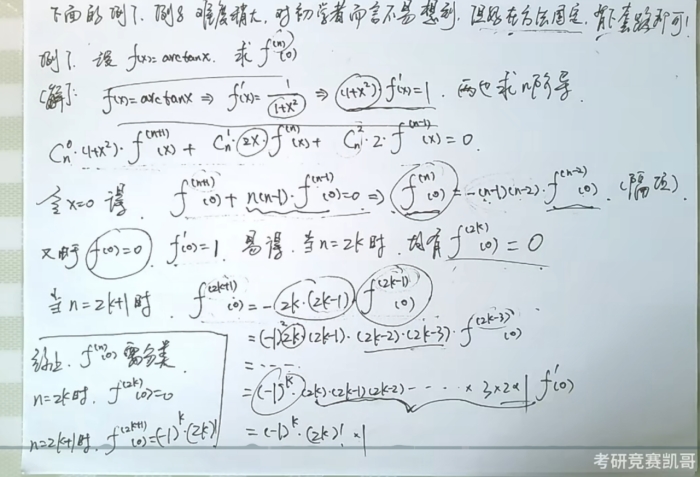 下面的例7、例8 难度稍大, 对初学者而言不易想到, 但好在方法固定, 背下套路即可!
例7. 设 f(x)=arctanx. 求 f^{(n)}(0)
(解): f(x)=arctanx ⇒ f'(x)=1/(1+x²) ⇒ (1+x²)·f'(x)=1. 两边求n阶导
C_n^0·(1+x²)·f^{(n+1)}(x) + C_n^1·2x·f^{(n)}(x) + C_n^2·2·f^{(n-1)}(x)=0.
令x=0 得. f^{(n+1)}(0)+n(n-1)·f^{(n-1)}(0)=0 ⇒ f^{(n)}(0)=-(n-1)(n-2)·f^{(n-2)}(0). (隔项)
又由于 f(0)=0. f'(0)=1. 易得. 当n=2k时. 均有 f^{(2k)}(0)=0
当n=2k+1时. f^{(2k+1)}(0)=-2k·(2k-1)·f^{(2k-1)}(0)
=(-1)²2k·(2k-1)·(2k-2)·(2k-3)·f^{(2k-3)}(0)
=……
=(-1)^k·(2k)·(2k-1)(2k-2)-----×3×2×1 f'(0)
=(-1)^k·(2k)!×1
综上. f^{(n)}(0)需分类
n=2k时. f^{(2k)}(0)=0
n=2k+1时. f^{(2k+1)}(0)=(-1)^k·(2k)!
考研竞赛凯哥